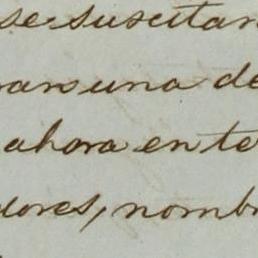 se suscitar
ran una de
ahora en te
dores, nombr